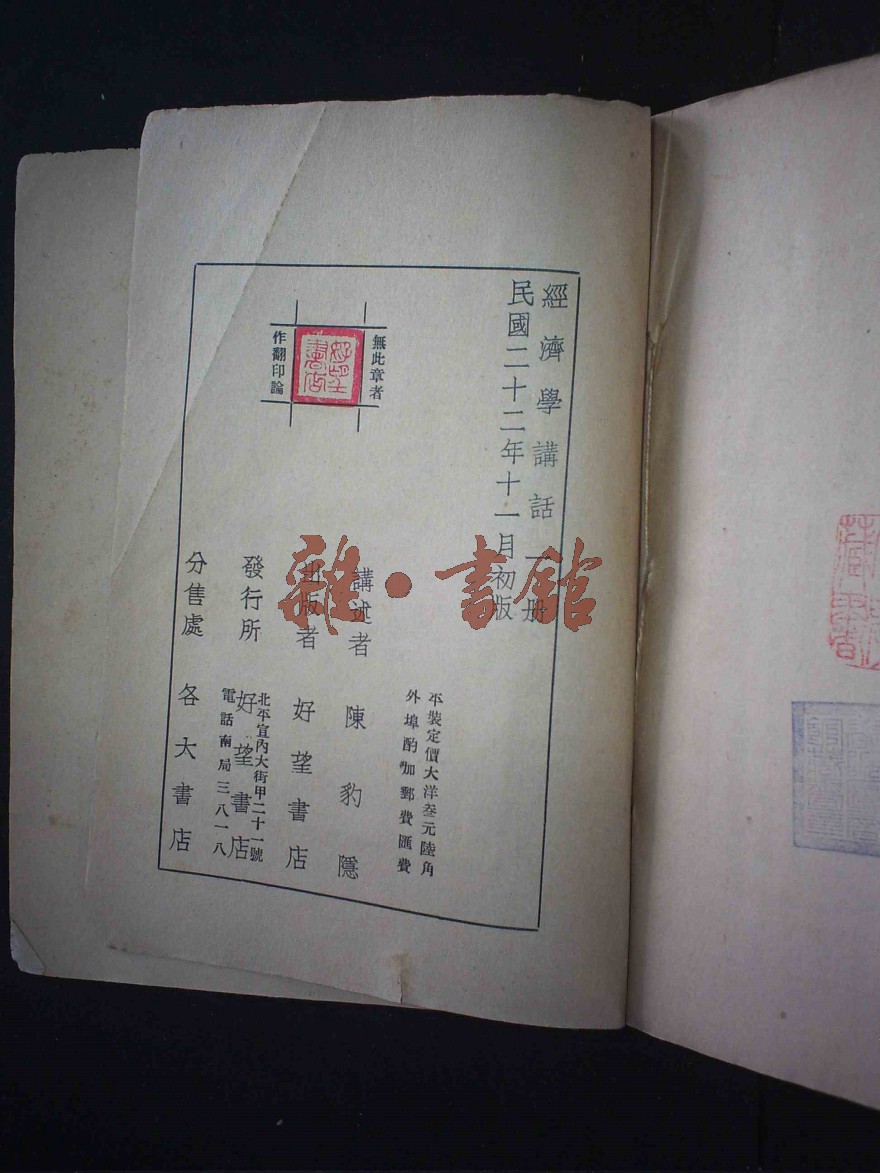 經濟學講話一册
民國二十二年十一月初版
平裝定價大洋叁元陸角
外埠酌加郵費匯費
講述者 陳豹隱
出版者 好望書店
發行所 好望書店
北平宣內大街甲二十一號
電話南局三八一八
分售處 各大書店
無此章者
作翻印論
好望書店
雜·書館
藏書